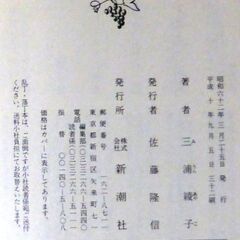 昭和六十二年三月二十五日 発行
平成十年九月五日 三十二刷
著者 三浦綾子
発行者 佐藤隆信
発行所 株式会社 新潮社
郵便番号 一六二―八七一一
東京都新宿区矢来町七一
電話 編集部〇三(三二六六)五四
読者係〇三(三二六六)五一一一
振替 〇〇一四〇―五―八〇八
価格はカバーに表示してあります。
乱丁・落丁本は、ご面倒ですが小社読者係宛ご送付
ください。送料小社負担にてお取替えいたします。